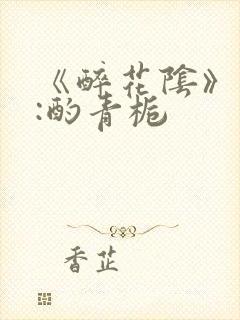 《醉花陰》
:酌青栀
香芷